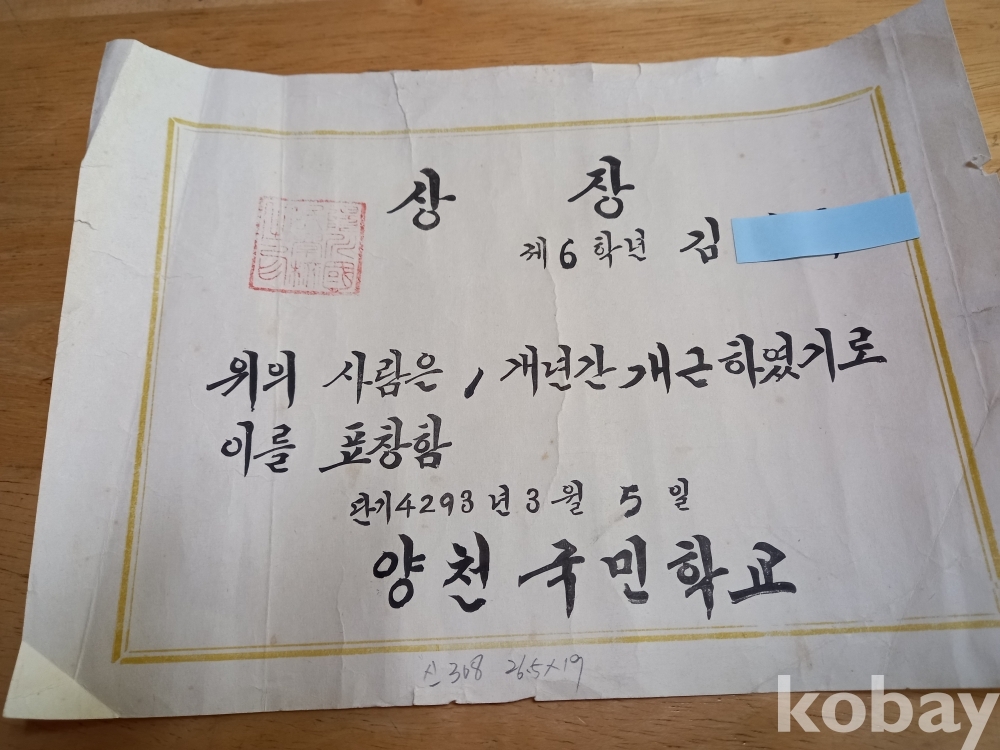 상 장
제6학년 김
위의 사람은, 개년간 개근하였기로
이를 표창함
단기4293년 3월 5일
양천국민학교
신308 26.5×19
kobay